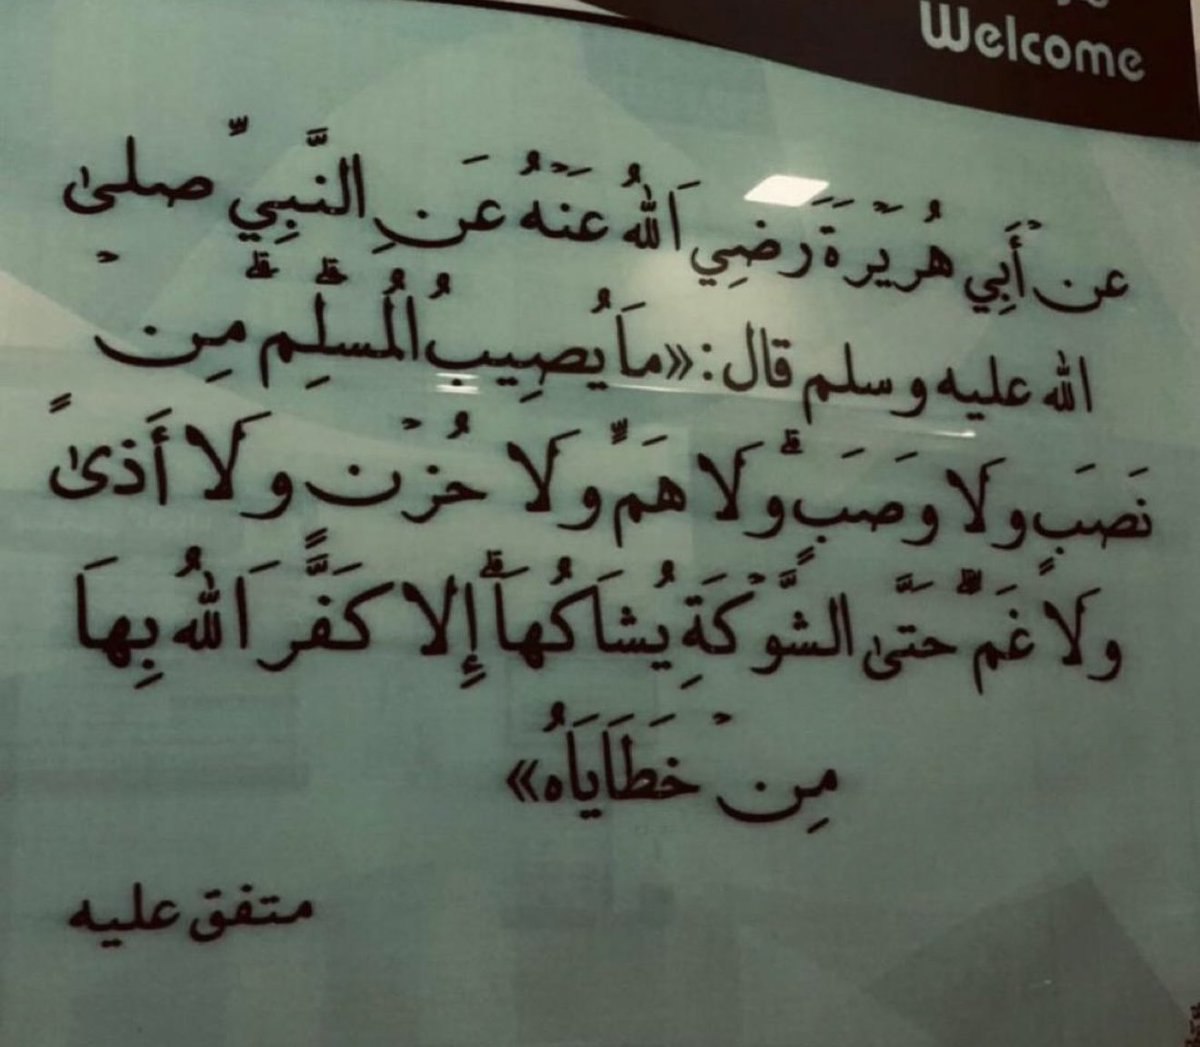 Welcome
عن أَبِي هُرَيْرَةَ رَضِي اَللهُ عَنْهُ عَنِ النَّبِيِّ صلى
الله عليه وسلم قال: «مَا يُصِيبُ الْمُسْلِمَ مِنْ
نَصَبٍ ولَا وَصَبٍ ولَا هَمٍّ ولَا حُزْن ولَا أَذىً
ولَا غَمٍّ حتَّى الشَّوْكَةِ يُشَاكُهَا إِلا كَفَّرَ اَللهُ بِهَا
مِنْ خَطَايَاهُ»
متفق عليه